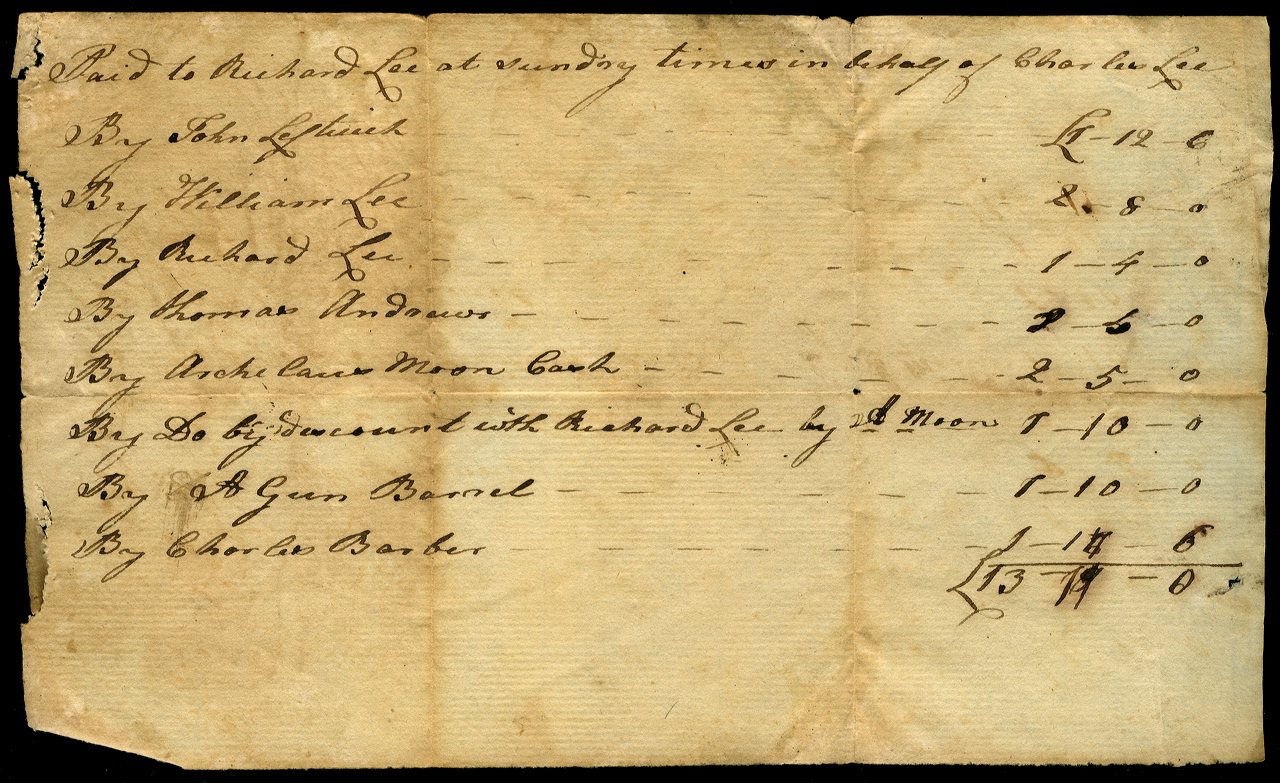 Paid to Richard Lee at sundry times in behalf of Charles Lee
By John Leftwich £1-12-6
By William Lee 2-8-0
By Richard Lee 1-4-0
By Thomas Andrews - 6 - 0
By Archelaus Moon Cash 2-5-0
By Do by discount with Richard Lee by A Moon 1-10-0
By A Gun Barrel 1-10-0
By Charles Barber 1 - - 6
£13 - - 0